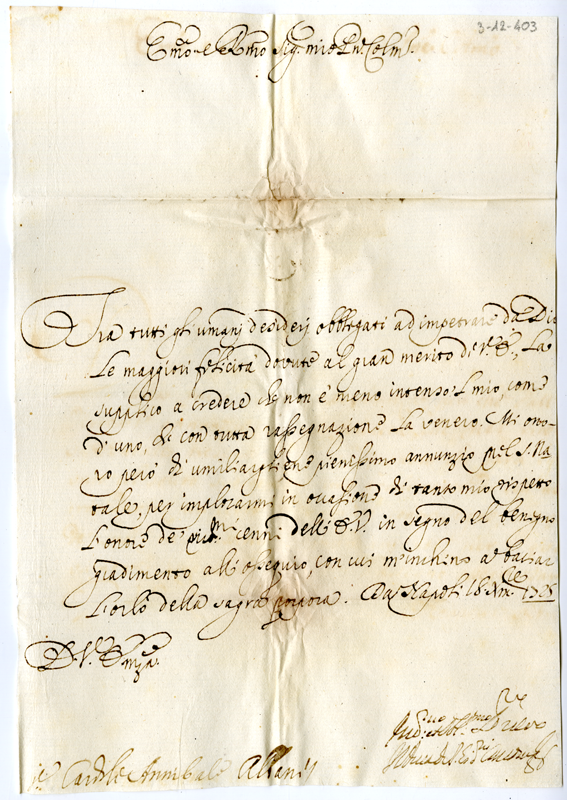 3-12-403
Emo. e Rmo Sig. mio Pne. Colmo.
Tra tutti gli umani desiderij obbligati ad impetrare da Dio
Le maggiori felicità dovute al gran merito di V. E., La
supplico a credere che non è meno intenso il mio, come
d'uno, che con tutta rassegnazione La venero. Mi ono-
ro però di umiliargliene pienissimo annunzio nel S. Na-
tale, per implorarmi in occasione di tanto mio rispetto
L'onore de' cenni dell' E. V. in segno del benigno
gradimento all' ossequio, con cui m'inchino a baciar
L'orlo della sagra porpora. Da Napoli 18
D. V. Emza.
Sr. Cardle Annibale Albani